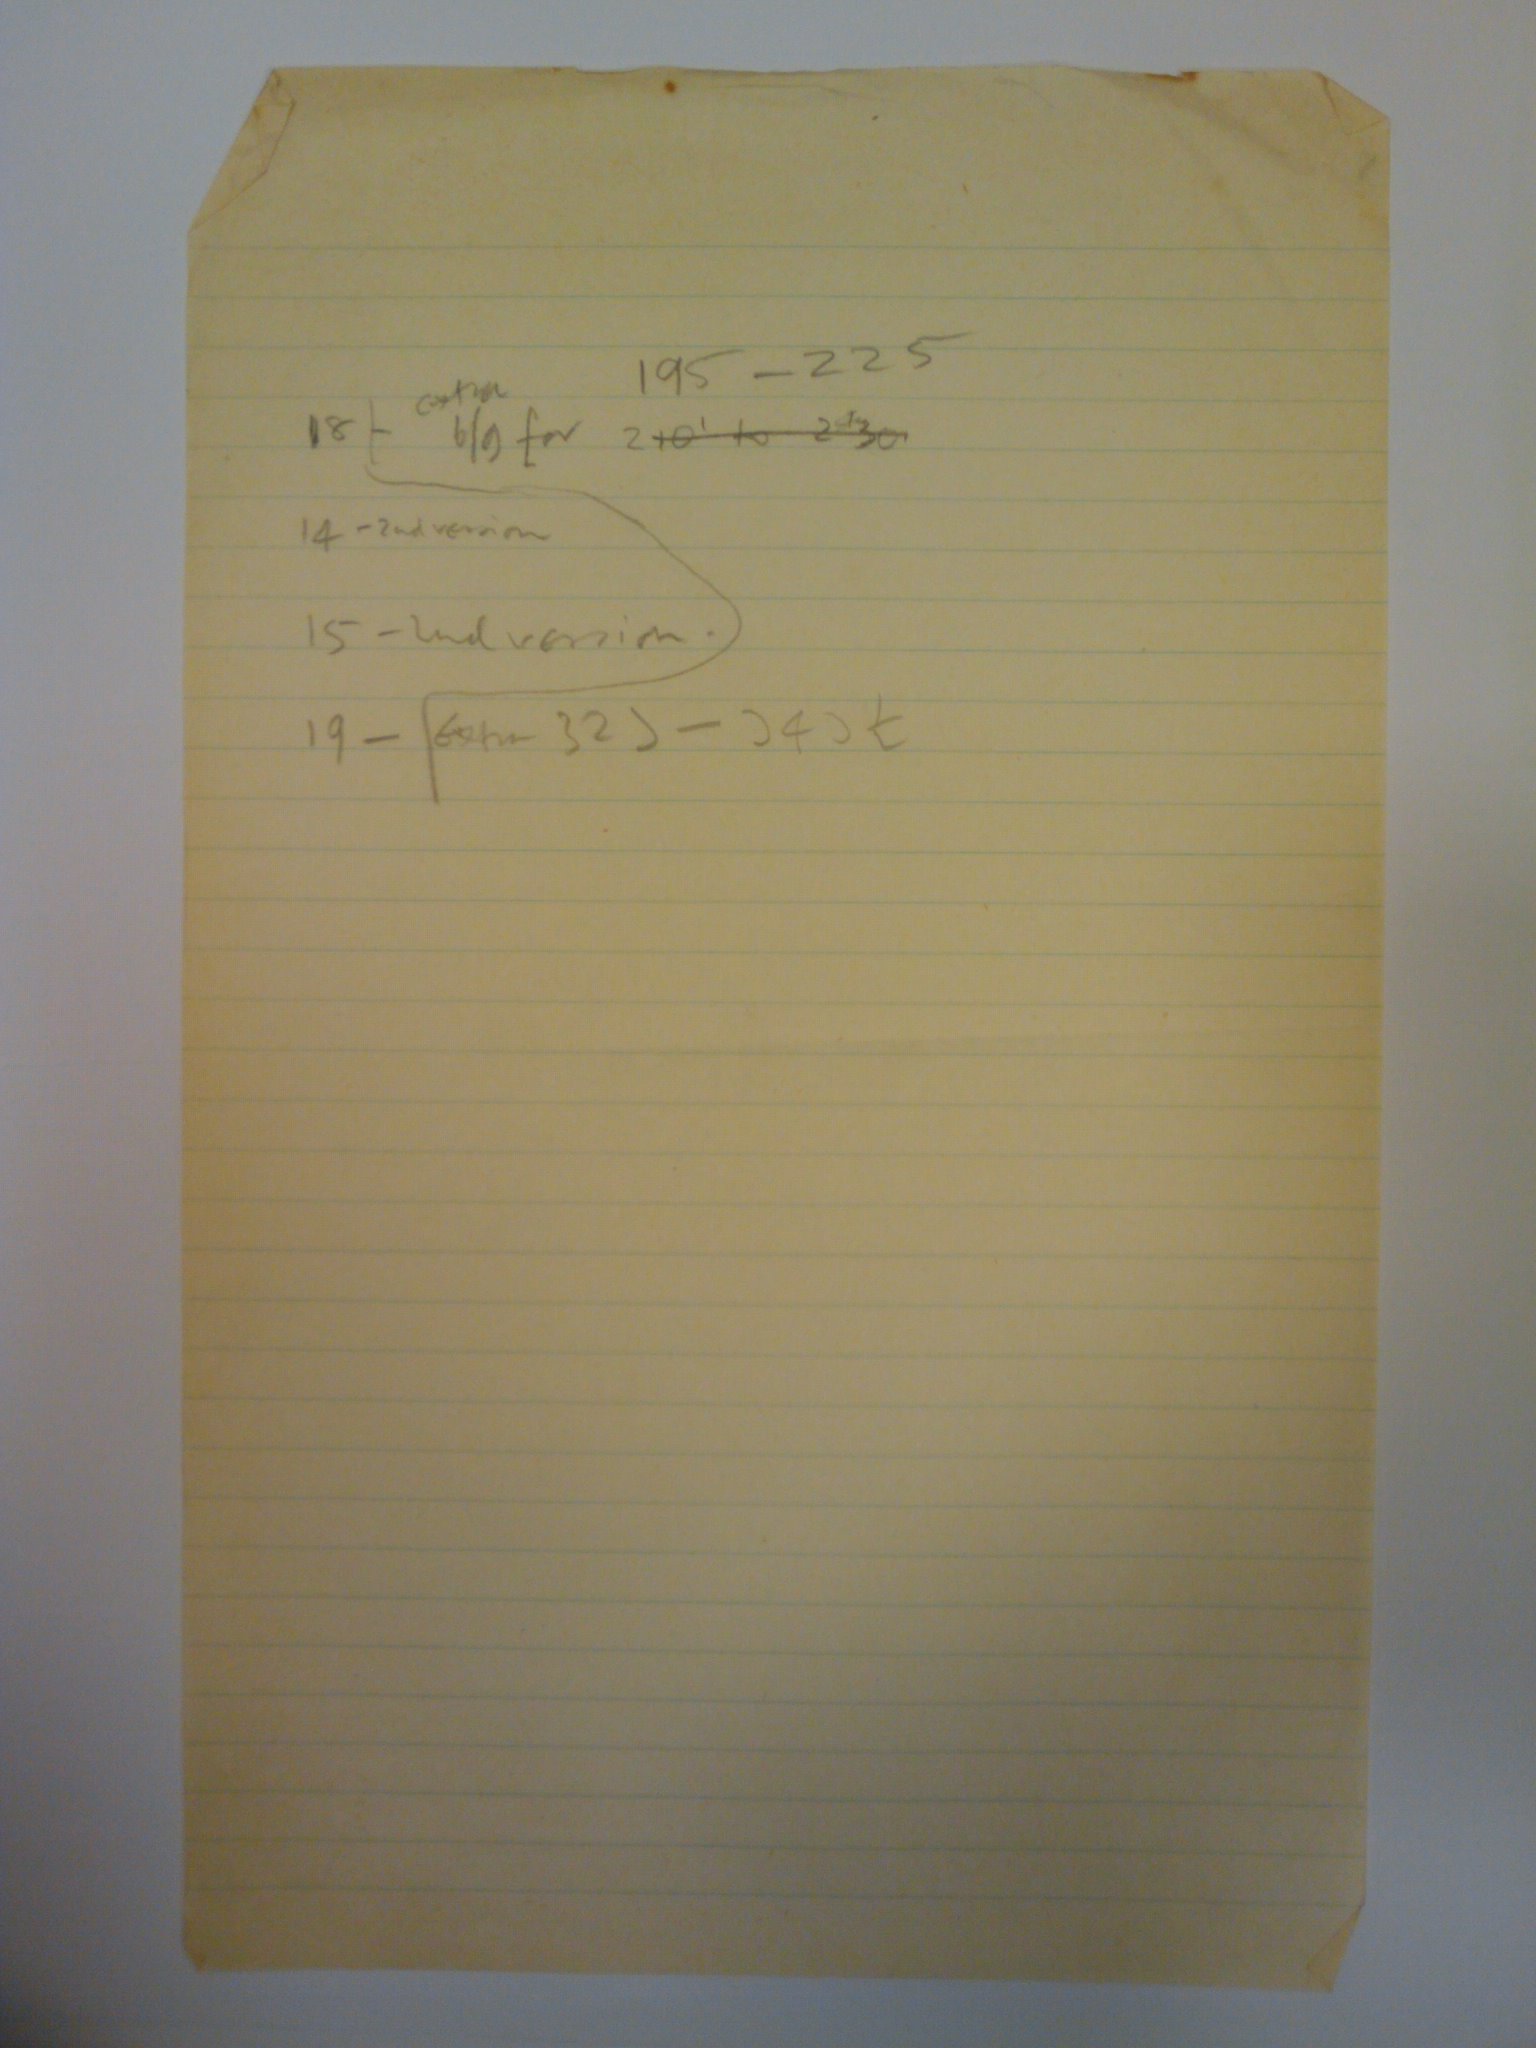 195 – 225
18 – extra b/g for 210' to 230'
14 – 2nd version
15 – 2nd version.
19 – extra 323 – 343